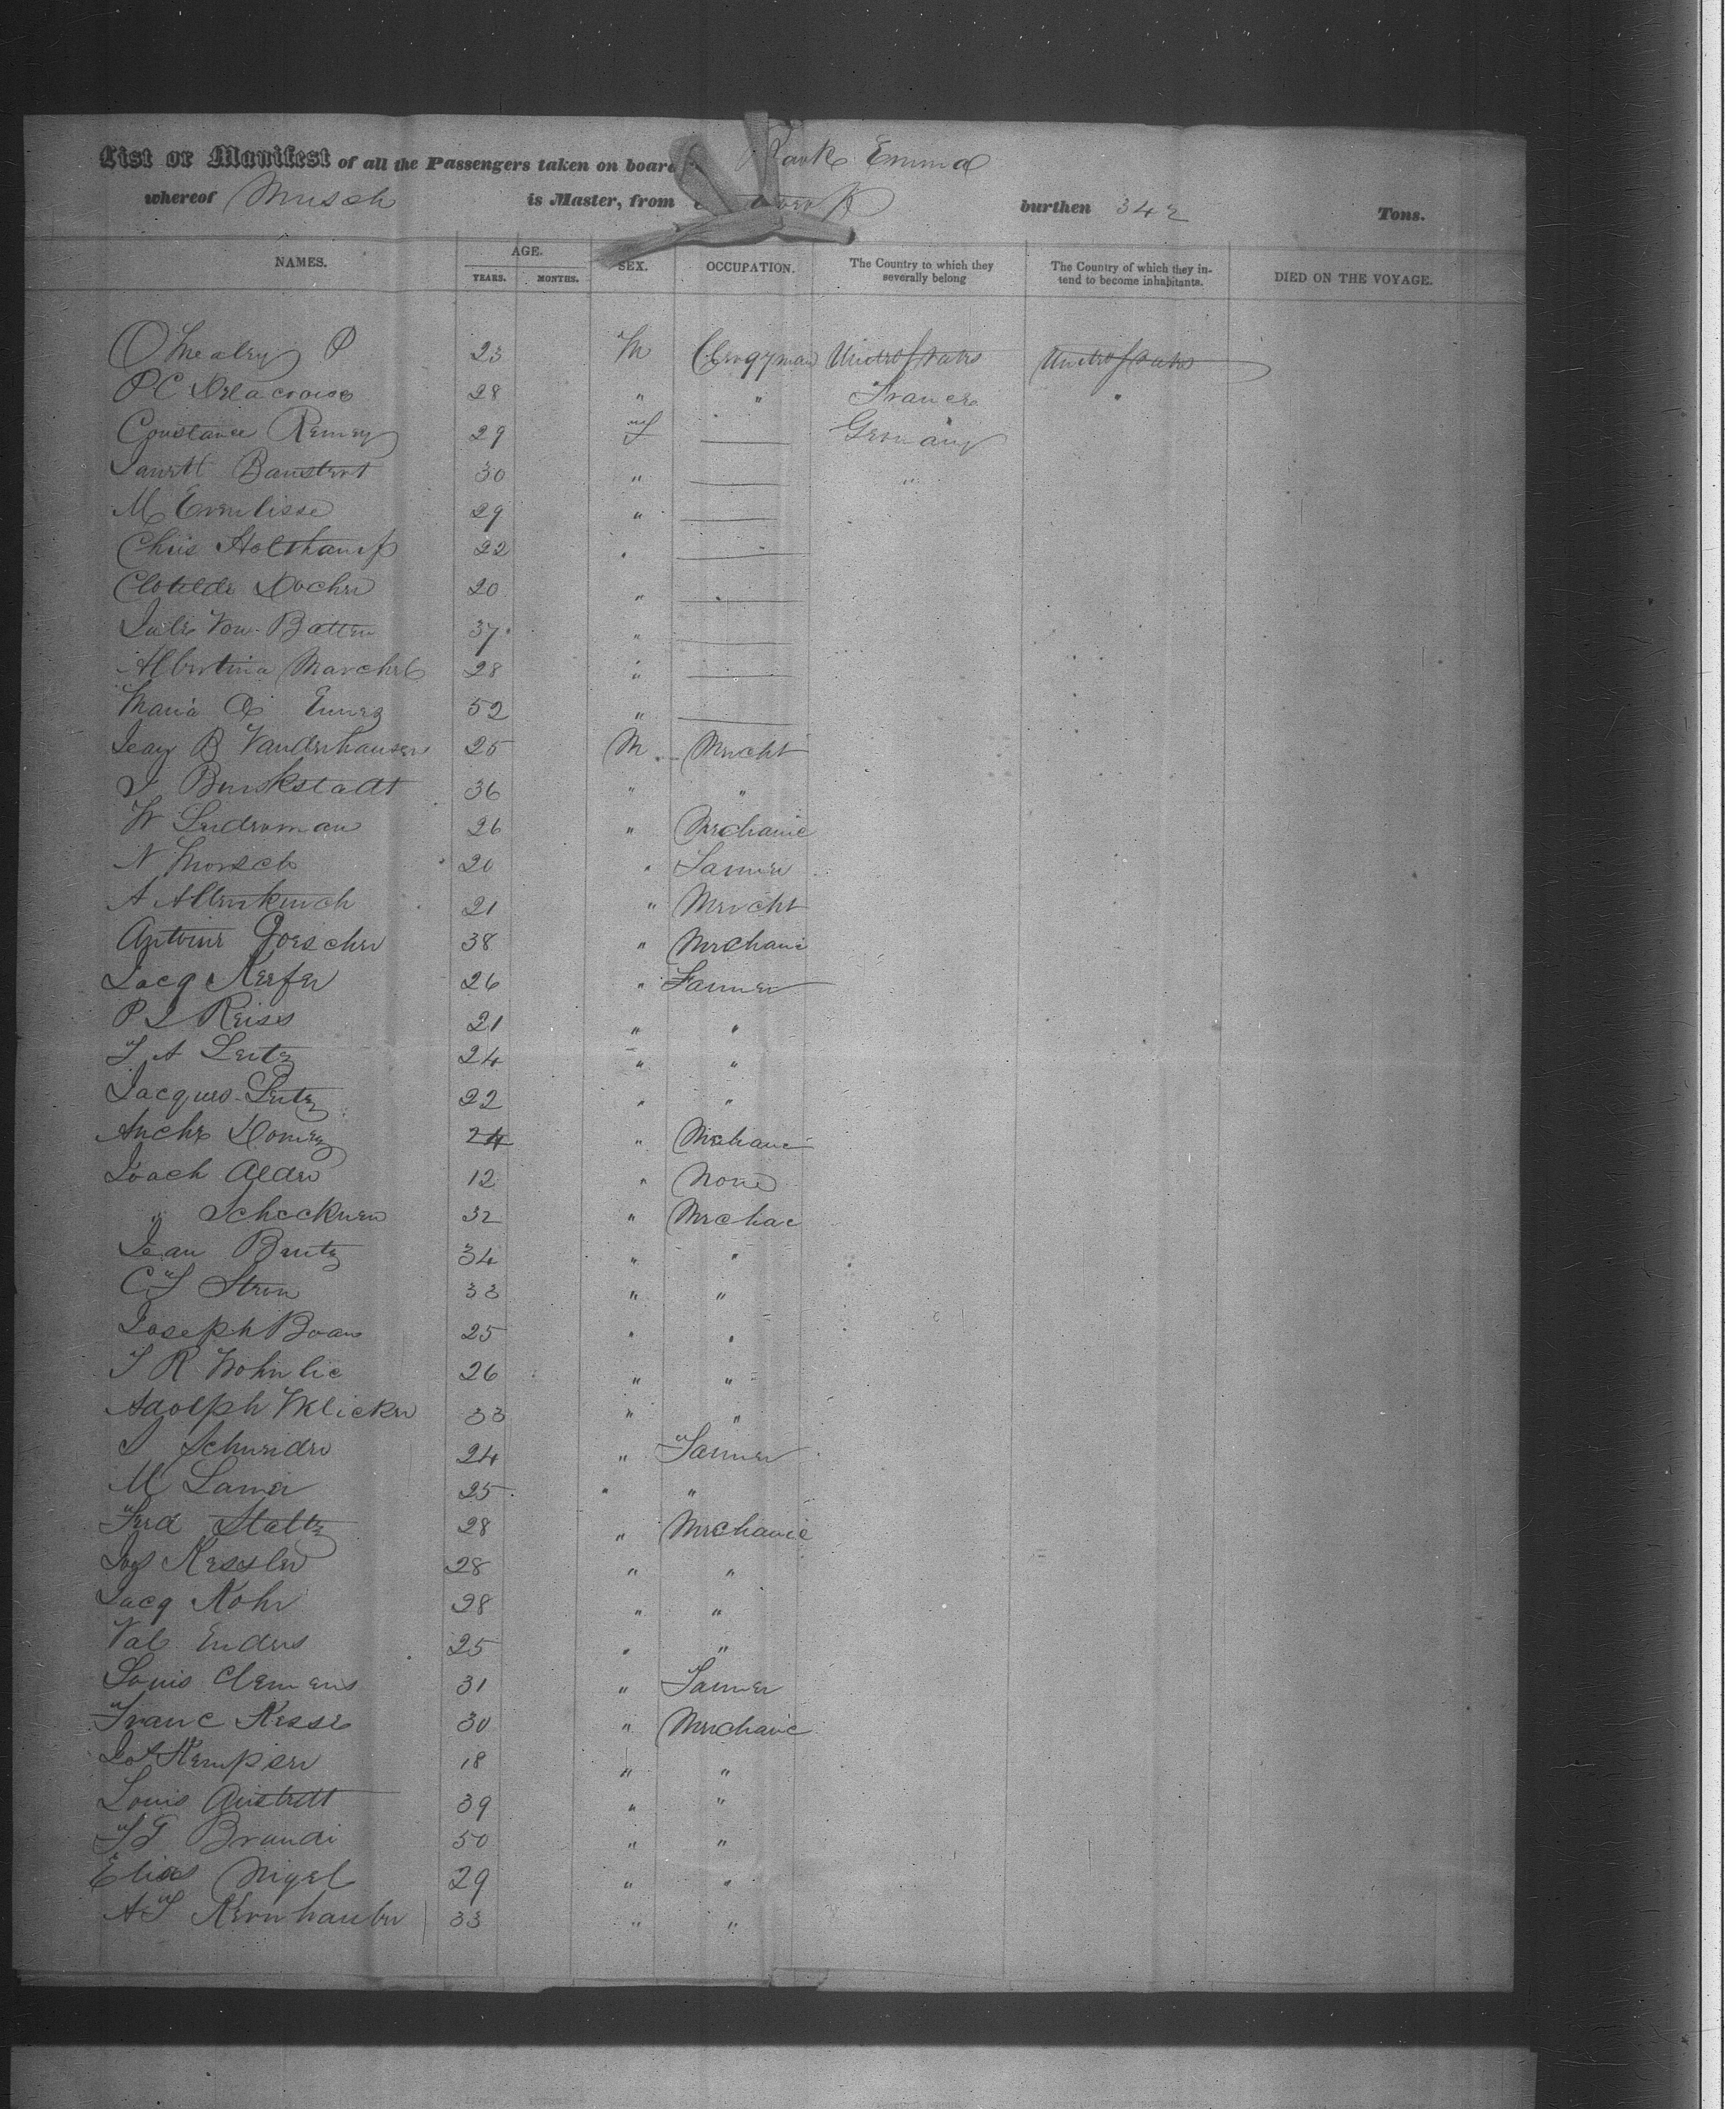 List or Manifest of all the Passengers taken on board Bark Emma
whereof Musch is Master, from burthen 342 Tons.
NAMES. AGE. YEARS. MONTHS. SEX. OCCUPATION. The Country to which they severally belong The Country of which they intend to become inhabitants. DIED ON THE VOYAGE.
O Mealey P 23 M Clergyman United States United States
P C Delacroise 28 " " France "
Constance Remey 29 F — Germany
30 " — "
M Everlisse 29 " —
Chris Holtkamp 22 " —
Clotilde Kocher 20 " —
Jule Von Batten 37 " —
Albertina Marchel 28 " —
Maria 52 " —
Jean B Vanderhausen 25 M Mercht
J Burkstadt 36 " "
W Luderman 26 " Mechanic
N Morsch 20 " Farmer
A 21 " Mercht
Antoine Goescher 38 " Mechanic
Jacq Keefer 26 " Farmer
P J Reiss 21 " "
F A Lentz 24 " "
Jacques Lentz 22 " "
24 " Mechanic
12 " None
" Scheckner 32 " Mechac
Jean Bentz 34 " "
C F Stern 33 " "
Joseph Boan 25 " "
F R Wohnlic 26 " "
Adolph Wklicker 33 " "
J Schneider 24 " Farmer
M Lamer 25 " "
Ferd Staltz 28 " Mechanic
Jos Kessler 28 " "
Jacq Kohr 28 " "
Val Enders 25 " "
Louis Clemens 31 " Farmer
Franc Kesse 30 " Mechanic
Kempser 18 " "
Louis 39 " "
F G Brandi 50 " "
Elias Nigel 29 " "
A F Kernhauber 33 " "